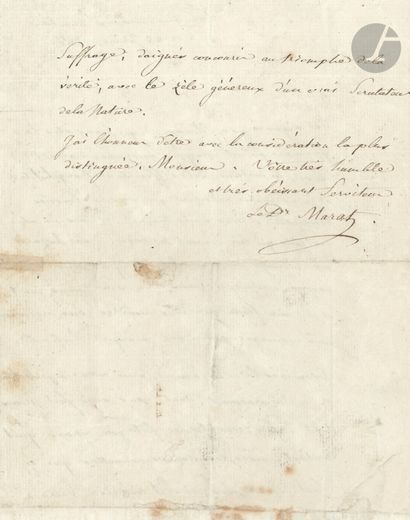 Suffrage, daignés concourir au triomphe de la
vérité, avec le zèle généreux d'un vrai Scrutateur
de la Nature.
J'ai l'honneur d'être avec la considération la plus
distinguée, Monsieur. Votre très humble
et très obéissant Serviteur
Le Dr Marat.